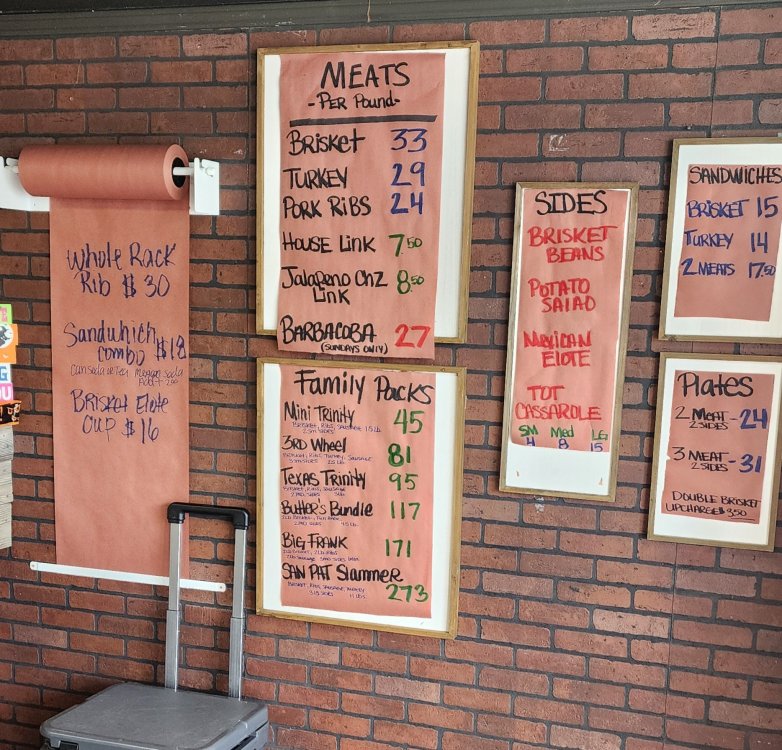 Whole Rack
Rib $30
Sandwhich $18
combo
Can soda or tea
Brisket Elote
Cup $16
MEATS
-Per Pound-
BRISKET 33
TURKEY 29
PORK RIBS 24
HOUSE LINK 7.50
Jalapeno Chz 8.50
Link
BARBACOBA 27
(SUNDAYS ONLY)
Family Packs
Mini Trinity 45
BRISKET, RIBS, SAUSAGE 1.5 lb
2 SM SIDES
3RD Wheel 81
Texas Trinity 95
Butter's Bundle 117
BIG FRANK 171
SAN PAT Slammer 273
SIDES
BRISKET
BEANS
POTATO
SALAD
MEXICAN
ELOTE
TOT
CASSAROLE
SM Med LG
4 8 15
SANDWICHES
BRISKET 15
TURKEY 14
2 MEATS 17.50
Plates
2 MEAT - 24
2 SIDES
3 MEAT - 31
2 SIDES
DOUBLE BRISKET
UPCHARGE $3.50